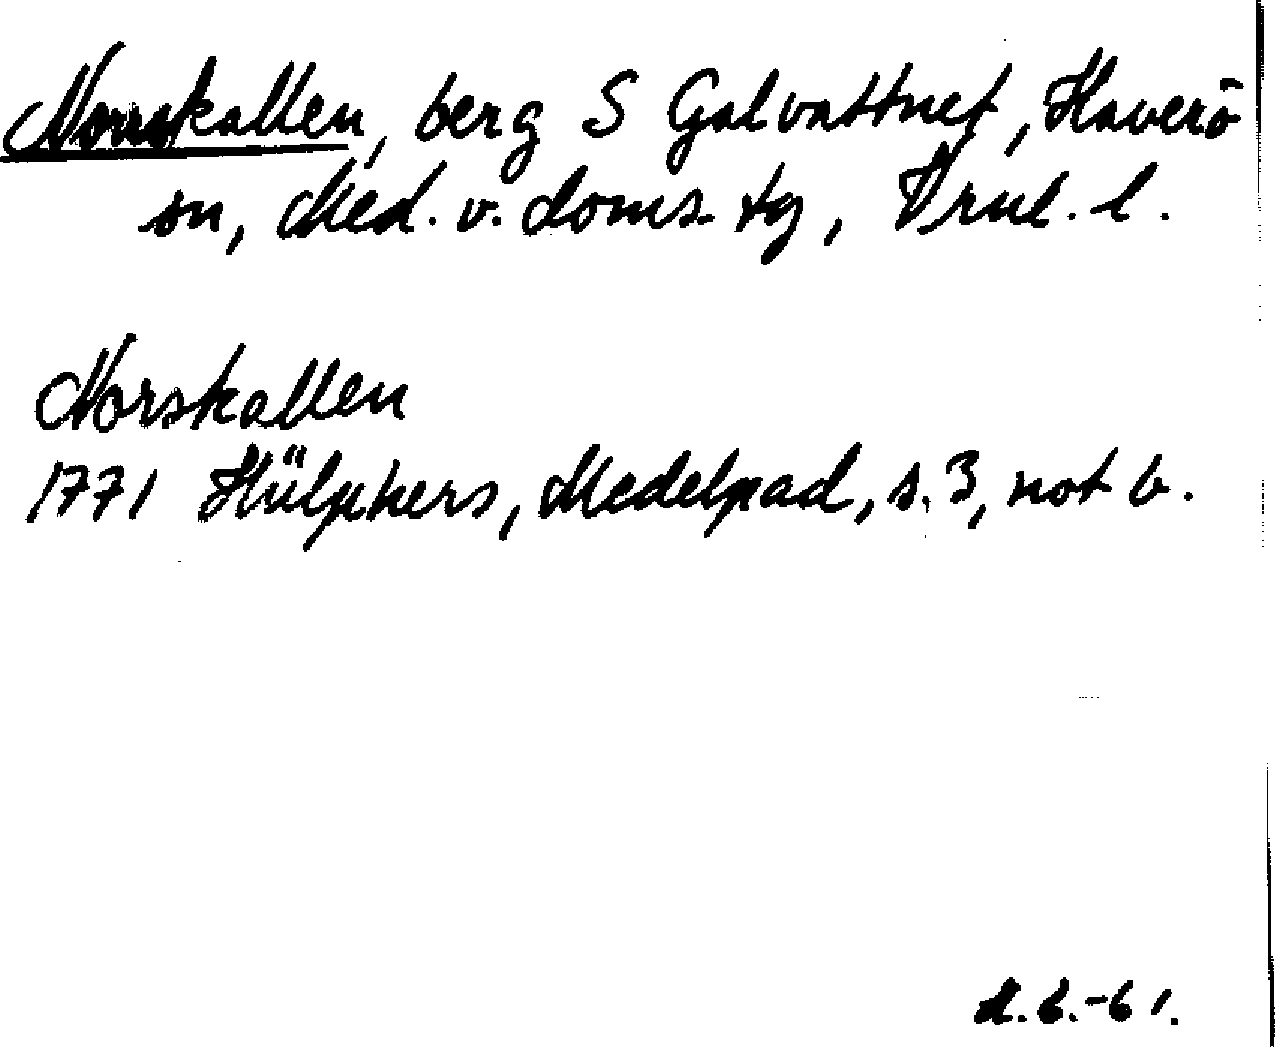 Norrskallen, berg S Galvattnet, Haverö
sn, Med. v. doms. tg, Vrnl. l.
Norskallen
1771 Hülphers, Medelpad, s. 3, not b.
-61.